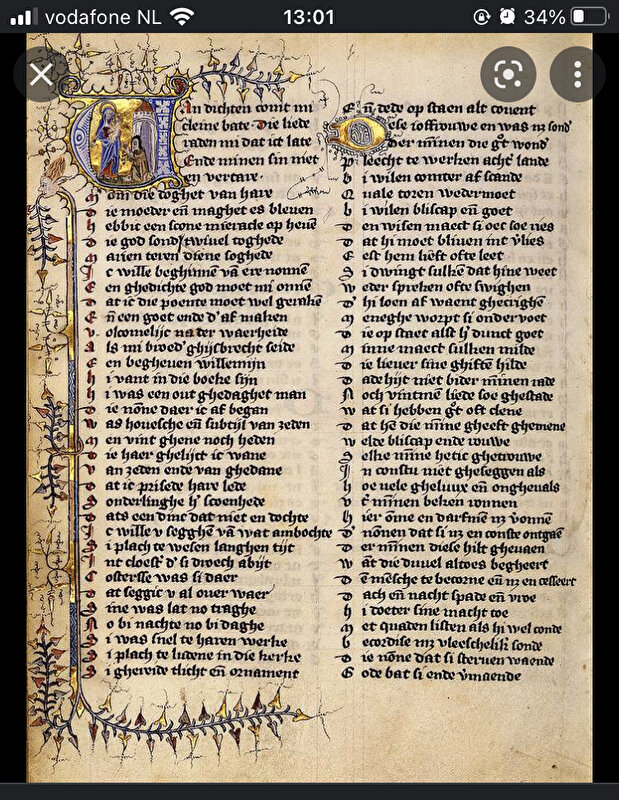 vodafone NL 13:01 34%
Van dichten comt mi
cleine bate Die liede
raden mi dat ict late
Ende minen sin niet
en vertare
Om die doghet van hare
Die moeder eñ maghet es bleuen
Hebbic een scone mieracle op heuē
Die god sonder twiuel toghede
Marien teren diene soghede
Ic wille beghinnē vā ere nonnen
Een ghedichte god moet mi onnē
Dat ic die poente moet wel geraken
Eñ een goet ende d'af maken
Volcomelijc na der waerheide
Als mi broed' ghijsbrecht seide
Een begheuen willemijn
Hi vant in die boeke sijn
Hi was een out ghedaghet man
Die nōne daer ic af began
Was houesche eñ subtijl van zeden
Men vint ghene noch heden
Die haer ghelijct ic wane
Van zeden ende van ghedane
Dat ic prisede hare lede
Sonderlinghe h' scoenhede
Dats een dinc dat niet en dochte
Ic wille v segghē vā wat ambochte
Si plach te wesen langhen tijt
Int cloest' d' si droech abijt
Costersse was si daer
Dat seggic v al ouer waer
Sine was lat no traghe
No bi nachte no bi daghe
Si was snel te haren werke
Si plach te ludene in die kerke
Si ghereide tlicht eñ ornament
Eñ dede op staen alt couent
Dese ioffrouwe en was nz sond'
Der minnen die g't wond'
Pleecht te werken achter lande
Bi wilen comter af scande
Quale toren wedermoet
Bi wilen bliscap eñ goet
Den wisen maect si oec soe ries
Dat hi moet bliuen int v'lies
Eest hem lieft ofte leet
Si dwingt sulken dat hine weet
Weder spreken ofte swighen
Dat hi loen af waent ghecrighē
Meneghe worpt si onder voet
Die op staet alst h' dunct goet
Minne maect sulken milde
Die lieuer sine ghiften hilde
Dade hijt niet bider minnen rade
Noch vintmē liede soe ghestade
Wat si hebben g't oft clene
Dat hē die mīne gheeft ghemene
Welde bliscap ende rouwe
Selke minne hetic ghetrouwe
In constu niet gheseggen als
Hoe vele gheluux eñ onghevals
Vt' minnen beken ronnen
Hier ōme en darfmē nz v'onnē
D' nonnen dat si nz en conste ontgaē
Der minnen diese hilt gheuaen
Wāt die duuel altoes begheert
Dē mensche te becorne eñ nz en cesseert
Dach eñ nacht spade eñ vroe
Hi doeter sine macht toe
Met quaden listen als hi wel conde
Becordise mz vleescheliker sonde
Die nōne dat si steruen waende
Gode bat si ende v'maende